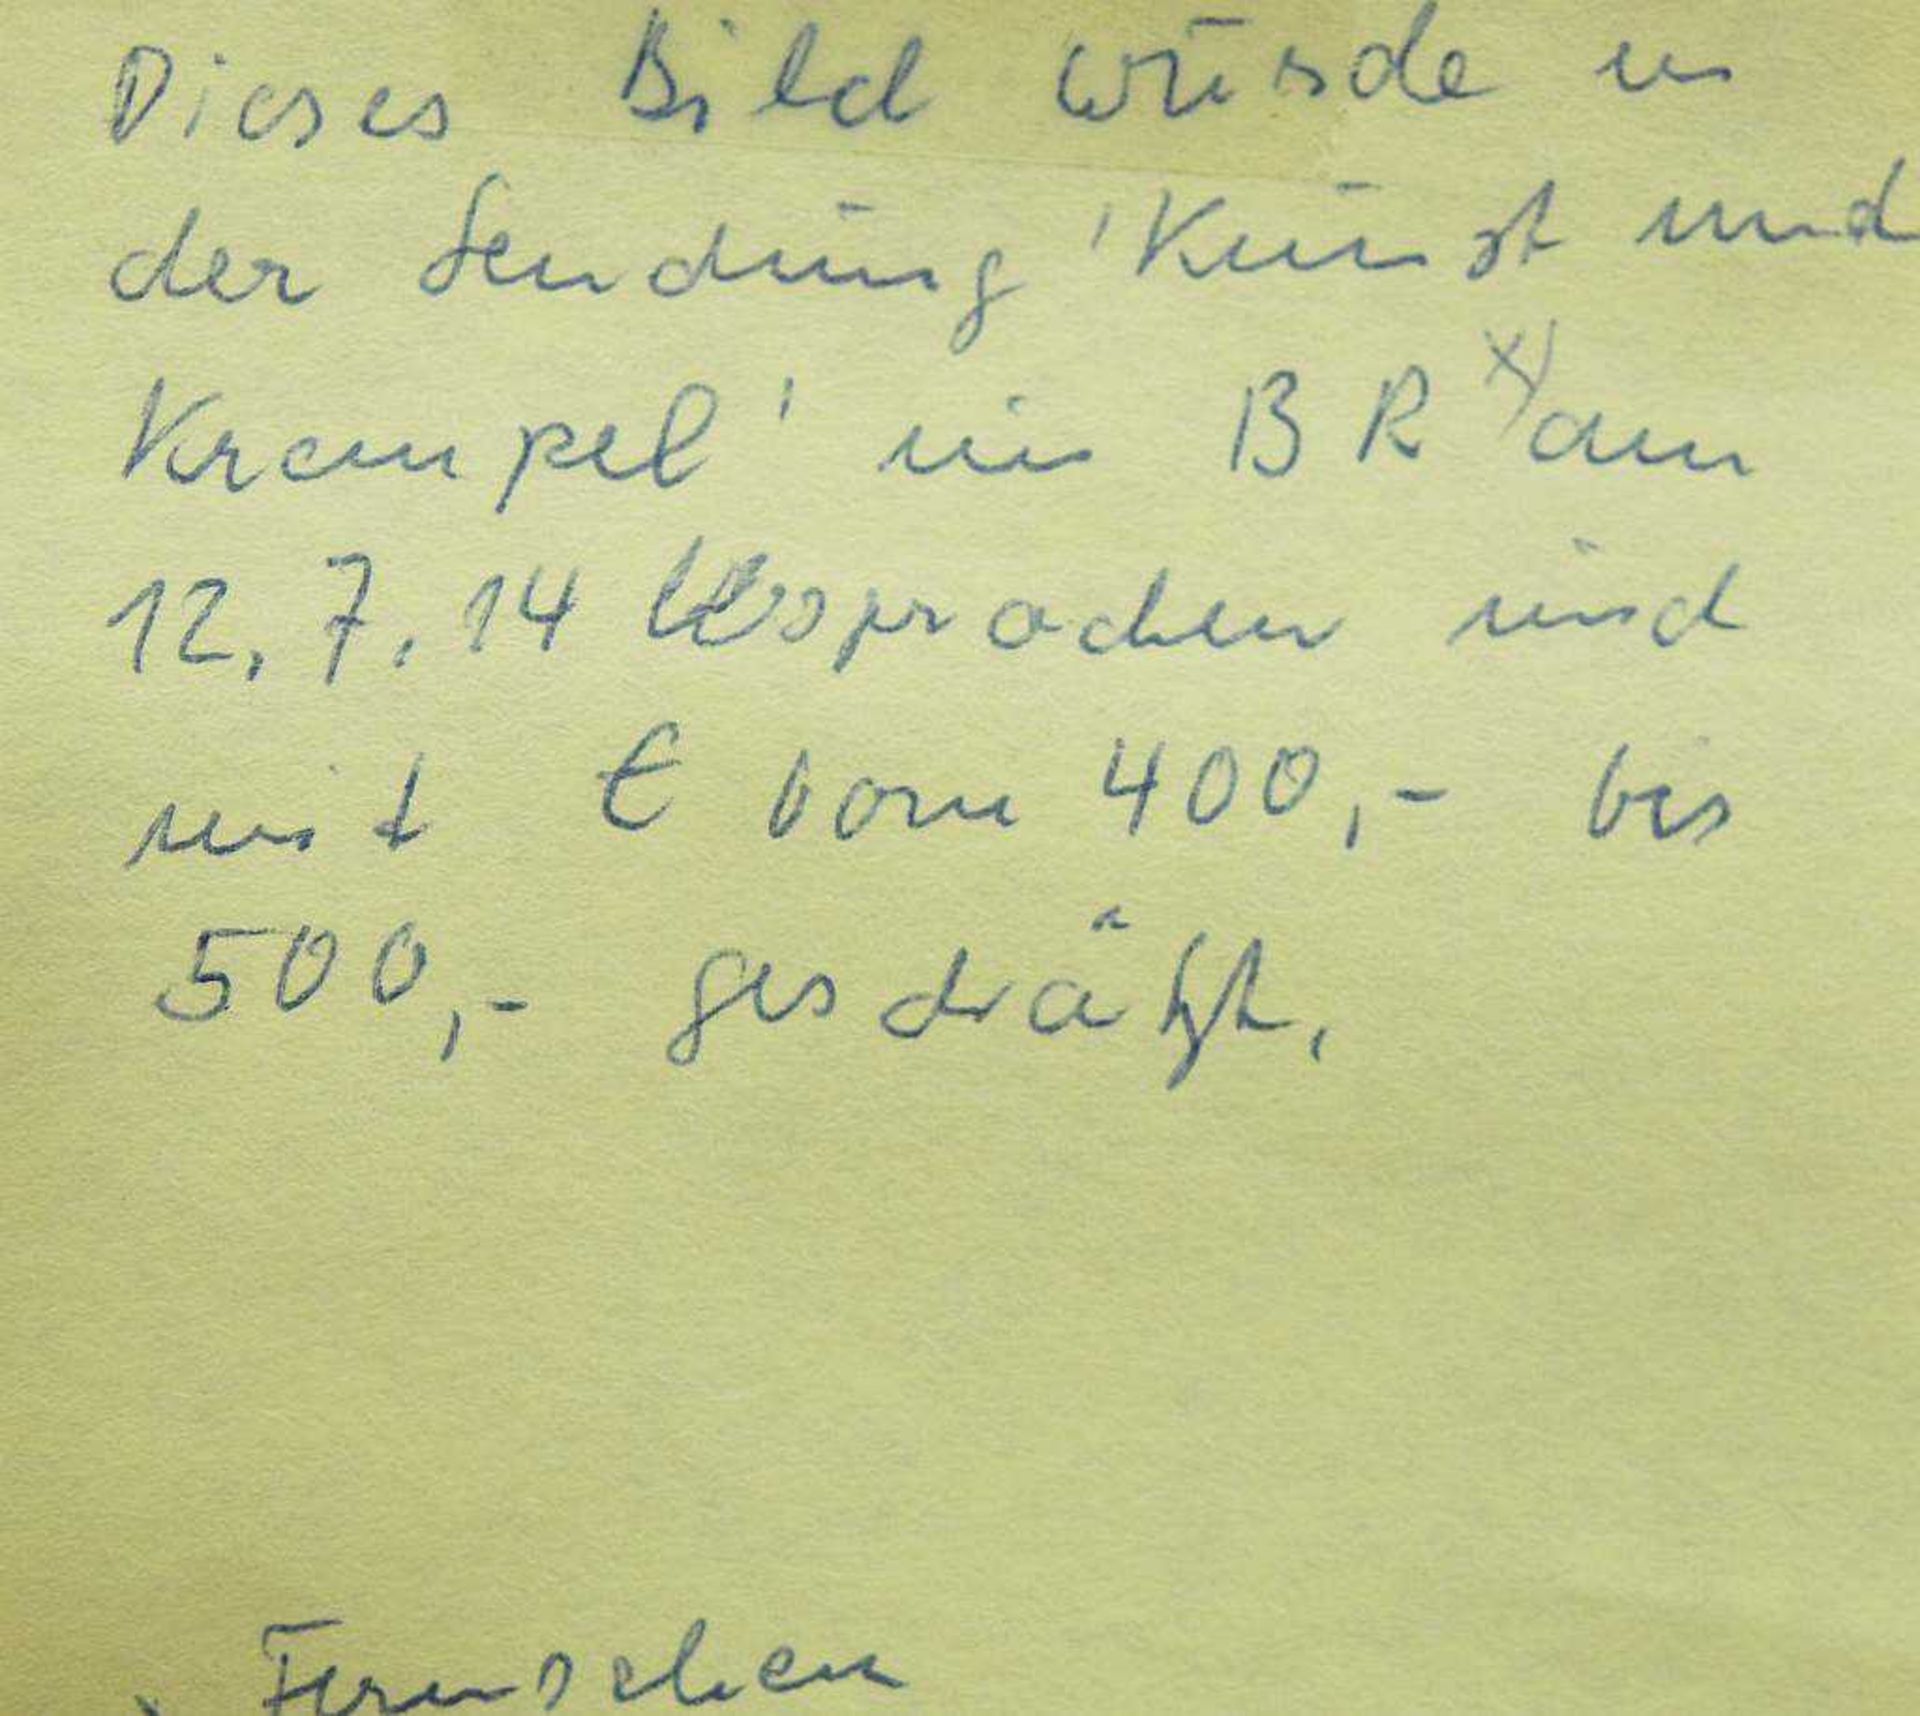 Dieses Bild wurde in
der Sendung 'Kunst und
Krempel' im BR x) am
12.7.14 besprochen und
mit € vom 400,- bis
500,- geschätzt.
Fernsehen